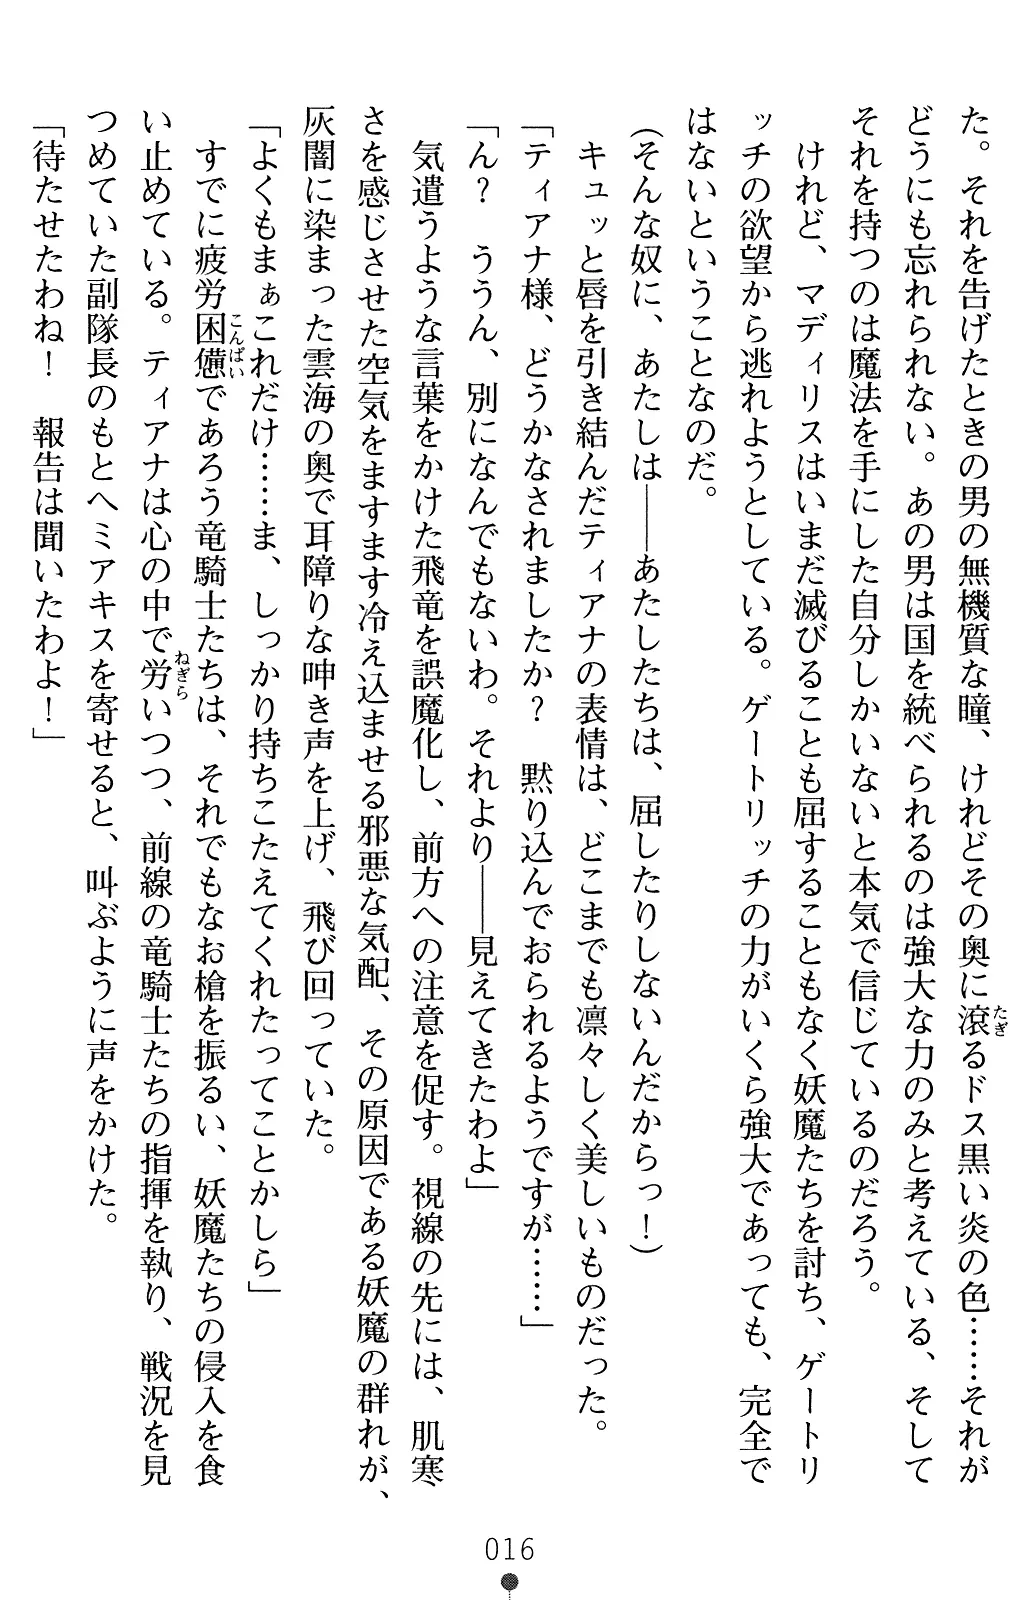 た。それを告げたときの男の無機質な瞳、けれどその奥に滾るドス黒い炎の色……それが
どうにも忘れられない。あの男は国を統べられるのは強大な力のみと考えている、そして
それを持つのは魔法を手にした自分しかいないと本気で信じているのだろう。
けれど、マディリスはいまだ滅びることも屈することもなく妖魔たちを討ち、ゲートリ
ッチの欲望から逃れようとしている。ゲートリッチの力がいくら強大であっても、完全で
はないということなのだ。
(そんな奴に、あたしは――あたしたちは、屈したりしないんだからっ！)
キュッと唇を引き結んだティアナの表情は、どこまでも凛々しく美しいものだった。
「ティアナ様、どうかなされましたか？　黙り込んでおられるようですが……」
「ん？　ううん、別になんでもないわ。それより――見えてきたわよ」
気遣うような言葉をかけた飛竜を誤魔化し、前方への注意を促す。視線の先には、肌寒
さを感じさせた空気をますます冷え込ませる邪悪な気配、その原因である妖魔の群れが、
灰闇に染まった雲海の奥で耳障りな呻き声を上げ、飛び回っていた。
「よくもまぁこれだけ……ま、しっかり持ちこたえてくれたってことかしら」
すでに疲労困憊であろう竜騎士たちは、それでもなお槍を振るい、妖魔たちの侵入を食
い止めている。ティアナは心の中で労いつつ、前線の竜騎士たちの指揮を執り、戦況を見
つめていた副隊長のもとへミアキスを寄せると、叫ぶように声をかけた。
「待たせたわね！　報告は聞いたわよ！」
たぎ
こんぱい
ねぎら
016